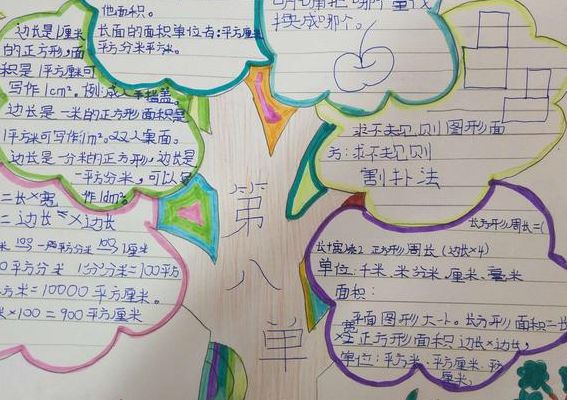 他面积。
长面的面积单位有:平方厘米
平方分米平方米。
边长是1厘米
的正方形,面
积是1平方厘米可
写作1cm²。例:成人手指盖。
边长是一米的正方形面积是
1平方米可写作1m²。双人桌面。
边长是一分米的正方形,边长是
一平方分米,可以
作1dm²。
二长×宽
二边长×边长
平方分米 1平方分米=100平方
方米=10000平方厘米。
米×100=900平方厘米
换成哪个。
求不规则图形面
方:求不规则
割补法
第
八
单
长方形周长=(
长+宽)×2 正方形周长(边长×4)
单位:千米.米分米.厘米.毫米
面积:
平面图形大小。长方形面积=长
×宽 正方形面积边长×边长,
单位:平方米.平方厘米.平方
厘米。